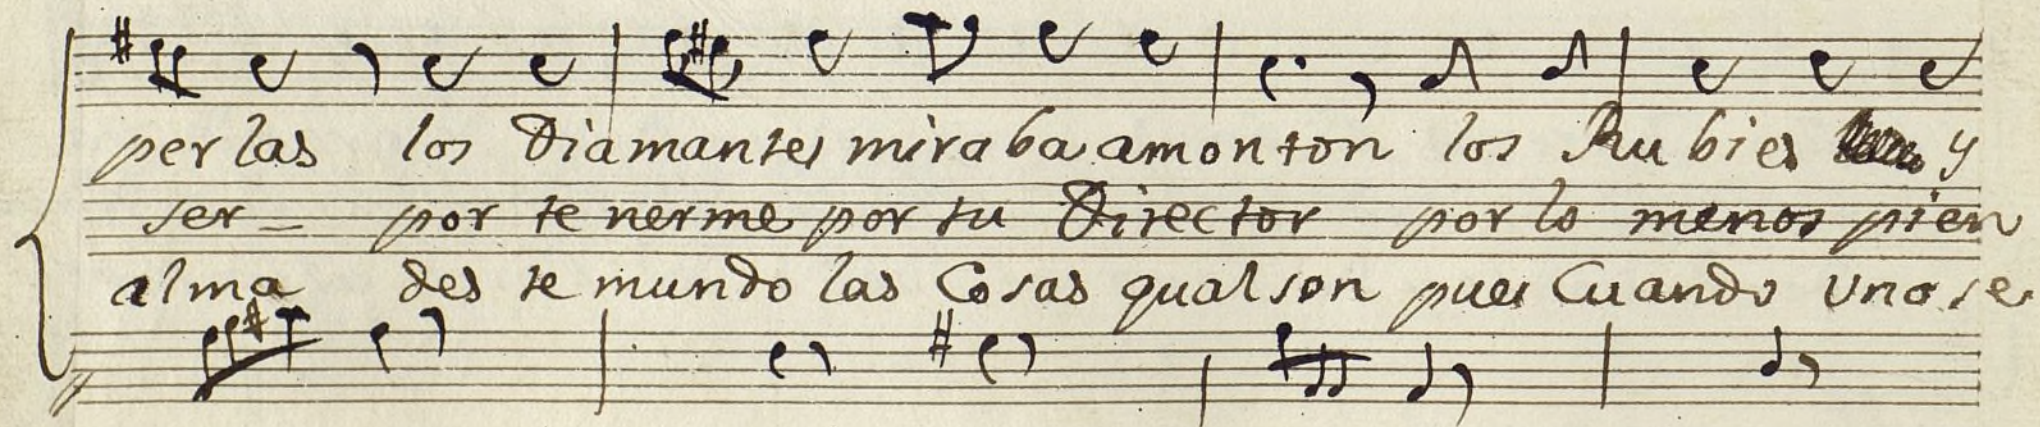 per las los Diamantes miraba amonton los Ru bies y
ser _ por te nerme por tu Director por lo menos pien
alma des te mundo las Cosas qual son pues Cuando Uno se